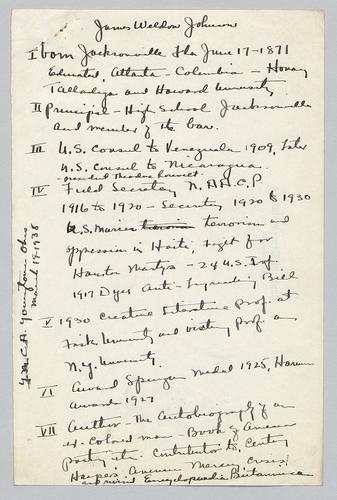 James Weldon Johnson
I born Jacksonville Fla June 17-1871
Educated, Atlanta - Columbia - Honary
Talladega and Howard University
II Principal - High School Jacksonville
and member of the bar.
III U.S. Consul to Venezuela 1909, later
U.S. Consul to Nicaragua.
President Theodore Roosevelt
IV Field Secretary N.A.A.C.P.
1916 to 1920 - Secretary 1920 to 1930
U.S. Marines terrorism and
oppression in Haiti, fight for
Houston Martyrs - 24 U.S. Inf.
1917 Dyer Anti-Lynching Bill
V 1930 Creative Literature Prof. at
Fisk University and visiting Prof. at
N.Y. University
VI Award Spingarn Medal 1925, Harmon
Award 1927
VII Author - The Autobiography of an
ex-Colored man - Book of American
Poetry etc. Contributor to, Century
Harper's American Mercury Crisis
Encyclopaedia Britannica
Y.M.C.A. Youngstown Ohio
March 19-1938